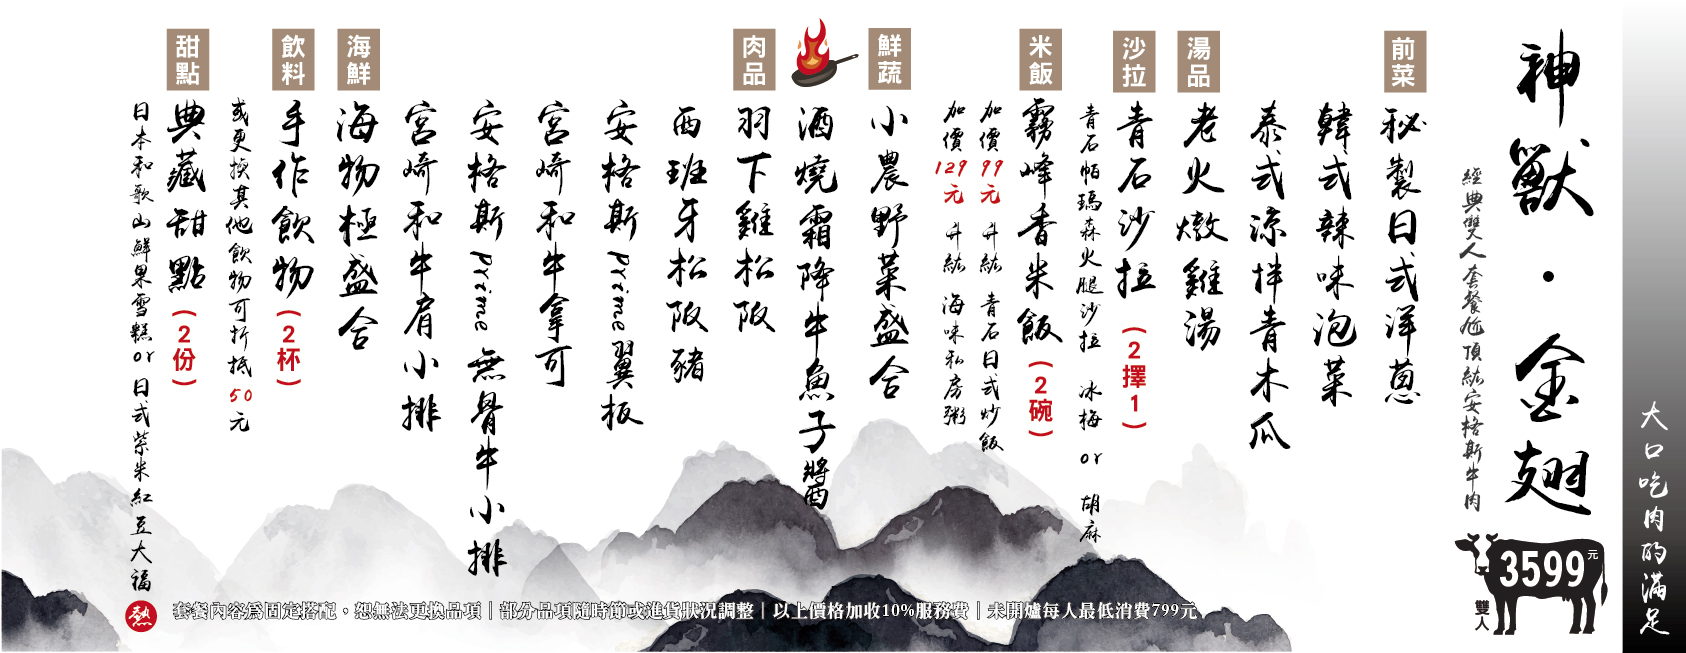 大口吃肉的滿足
神獸・金翅
經典雙人套餐極頂級安格斯牛肉
3599元
雙人
前菜
秘製日式洋蔥
韓式辣味泡菜
泰式涼拌青木瓜
湯品
老火燉雞湯
沙拉
青石沙拉(2擇1)
青石帕瑪森火腿沙拉 冰梅 or 胡麻
米飯
霧峰香米飯(2碗)
加價99元 升級 青石日式炒飯
加價129元 升級 海味私房粥
鮮蔬
小農野菜盛合
酒燒霜降牛魚子醬
肉品
羽下雞松阪
西班牙松阪豬
安格斯prime翼板
宮崎和牛拿可
安格斯prime無骨牛小排
宮崎和牛肩小排
海鮮
海物極盛合
飲料
手作飲物(2杯)
或更換其他飲物可折抵50元
甜點
典藏甜點(2份)
日本和歌山鮮果雪糕or日式紫米紅豆大福
熱 套餐內容為固定搭配，恕無法更換品項｜部分品項隨時節或進貨狀況調整｜以上價格加收10%服務費｜未開爐每人最低消費799元